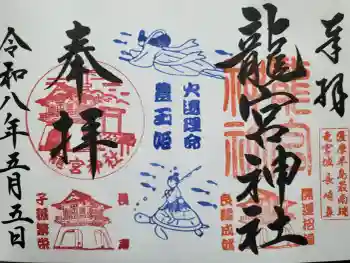 奉拝
薩摩半島最南端
竜宮城 長崎鼻
龍宮神社
龍宮神社
開運招福
良縁成就
火遠理命
豊玉姫
奉拝
龍宮神社
長寿
子孫繁栄
令和八年五月五日